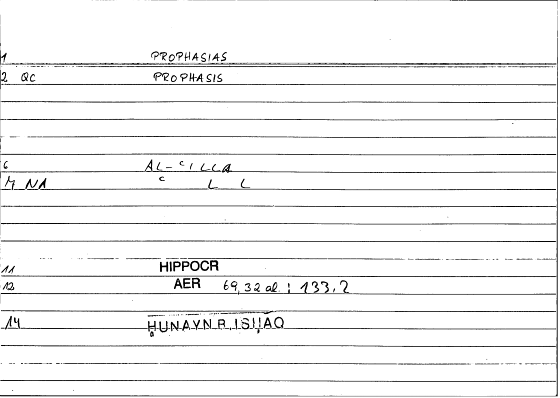 1 PROPHASIAS
2 QC PROPHASIS
6 AL-cILLA
M NA c L L
11 HIPPOCR
12 AER 69,32 al. : 133,2
14 ḤUNAYN B. ISḤĀQ